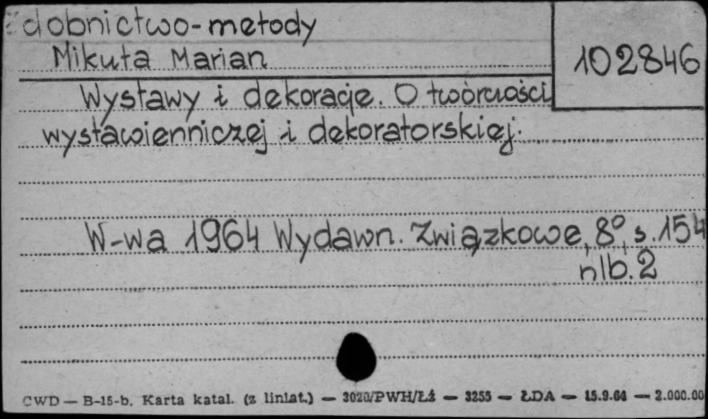 zdobnictwo-metody
Mikuta Marian
102846
Wystawy i dekoracje. O twórczości
wystawienniczej i dekoratorskiej.
W-wa 1964 Wydawn. Związkowe, 8°, s. 154
nlb. 2
CWD — B-15-b. Karta katal. (z liniat.) — 3020/PWH/Łź — 3255 — ŁDA — 15.9.64 — 2.000.00